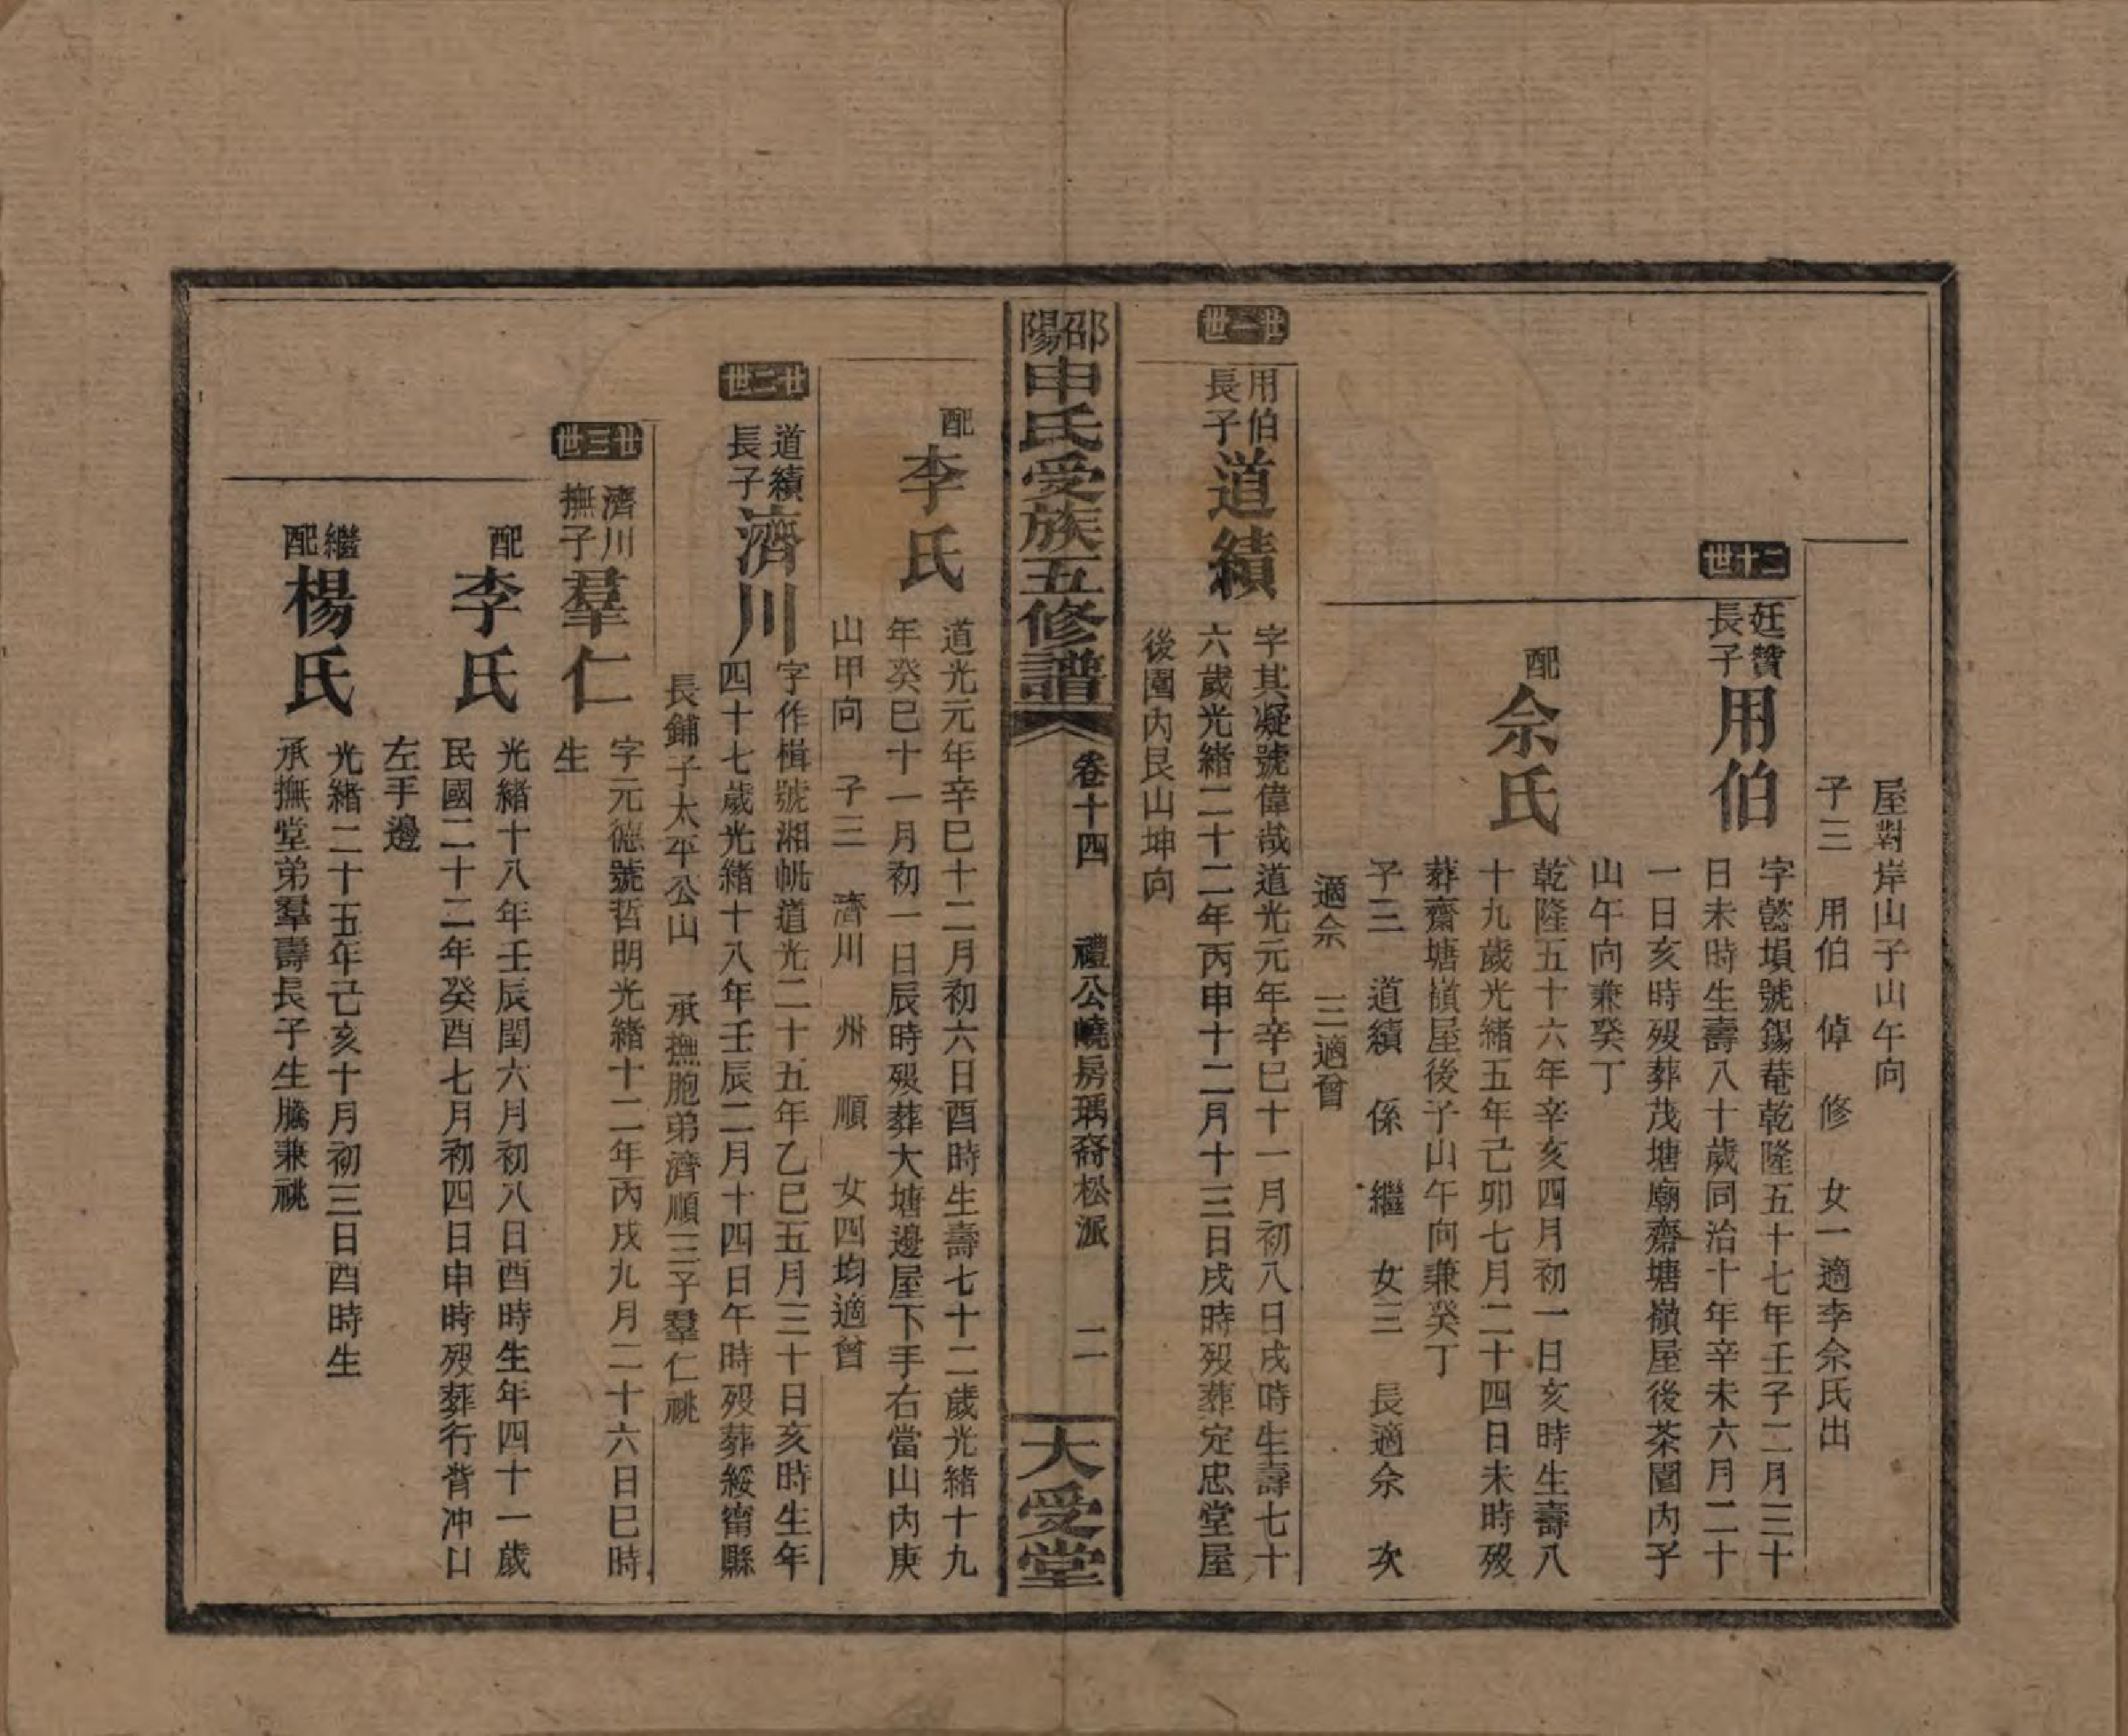 屋對岸山子山午向
子三 用伯 倬 修 女一適李佘氏出
二十世
廷贊
長子
用伯
字懿塤號錫菴乾隆五十七年壬子二月三十
日未時生壽八十歲同治十年辛未六月二十
一日亥時歿葬茂塘廟齋塘嶺屋後茶園內子
山午向兼癸丁
配
佘氏
乾隆五十六年辛亥四月初一日亥時生壽八
十九歲光緒五年己卯七月二十四日未時歿
葬齋塘嶺屋後子山午向兼癸丁
子三 道績 係 繼 女三 長適佘 次
適佘 三適曾
廿一世
用伯
長子
道績
字其凝號偉哉道光元年辛巳十一月初八日戌時生壽七十
六歲光緒二十二年丙申十二月十三日戌時歿葬定忠堂屋
後園內艮山坤向
邵陽申氏受族五修譜
卷十四 禮公嶢房瑀裔松派 二
大受堂
配
李氏
道光元年辛巳十二月初六日酉時生壽七十二歲光緒十九
年癸巳十一月初一日辰時歿葬大塘邊屋下手右當山內庚
山甲向 子三 濟川 州 順 女四均適曾
廿二世
道績
長子
濟川
字作楫號湘帆道光二十五年乙巳五月三十日亥時生年
四十七歲光緒十八年壬辰二月十四日午時歿葬綏甯縣
長鋪子太平公山 承撫胞弟濟順三子羣仁祧
廿三世
濟川
撫子
羣仁
字元德號哲明光緒十二年丙戌九月二十六日巳時
生
配
李氏
光緒十八年壬辰閏六月初八日酉時生年四十一歲
民國二十二年癸酉七月初四日申時歿葬行背冲口
左手邊
繼
配
楊氏
光緒二十五年己亥十月初三日酉時生
承撫堂弟羣壽長子生騰兼祧